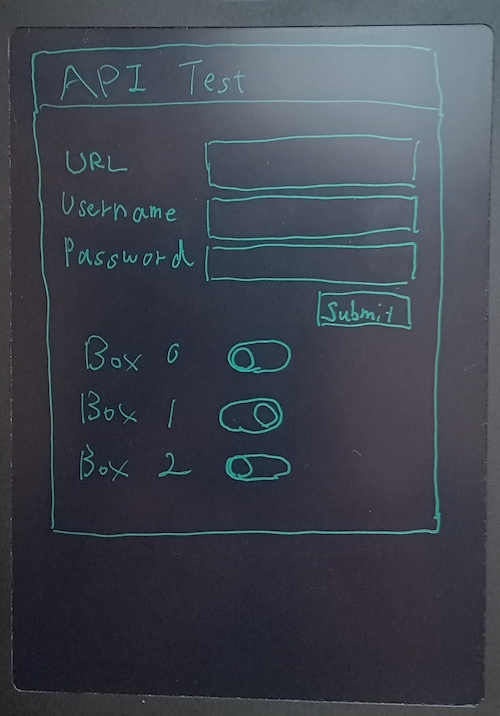 API Test
URL
Username
Password
Submit
Box 0
Box 1
Box 2